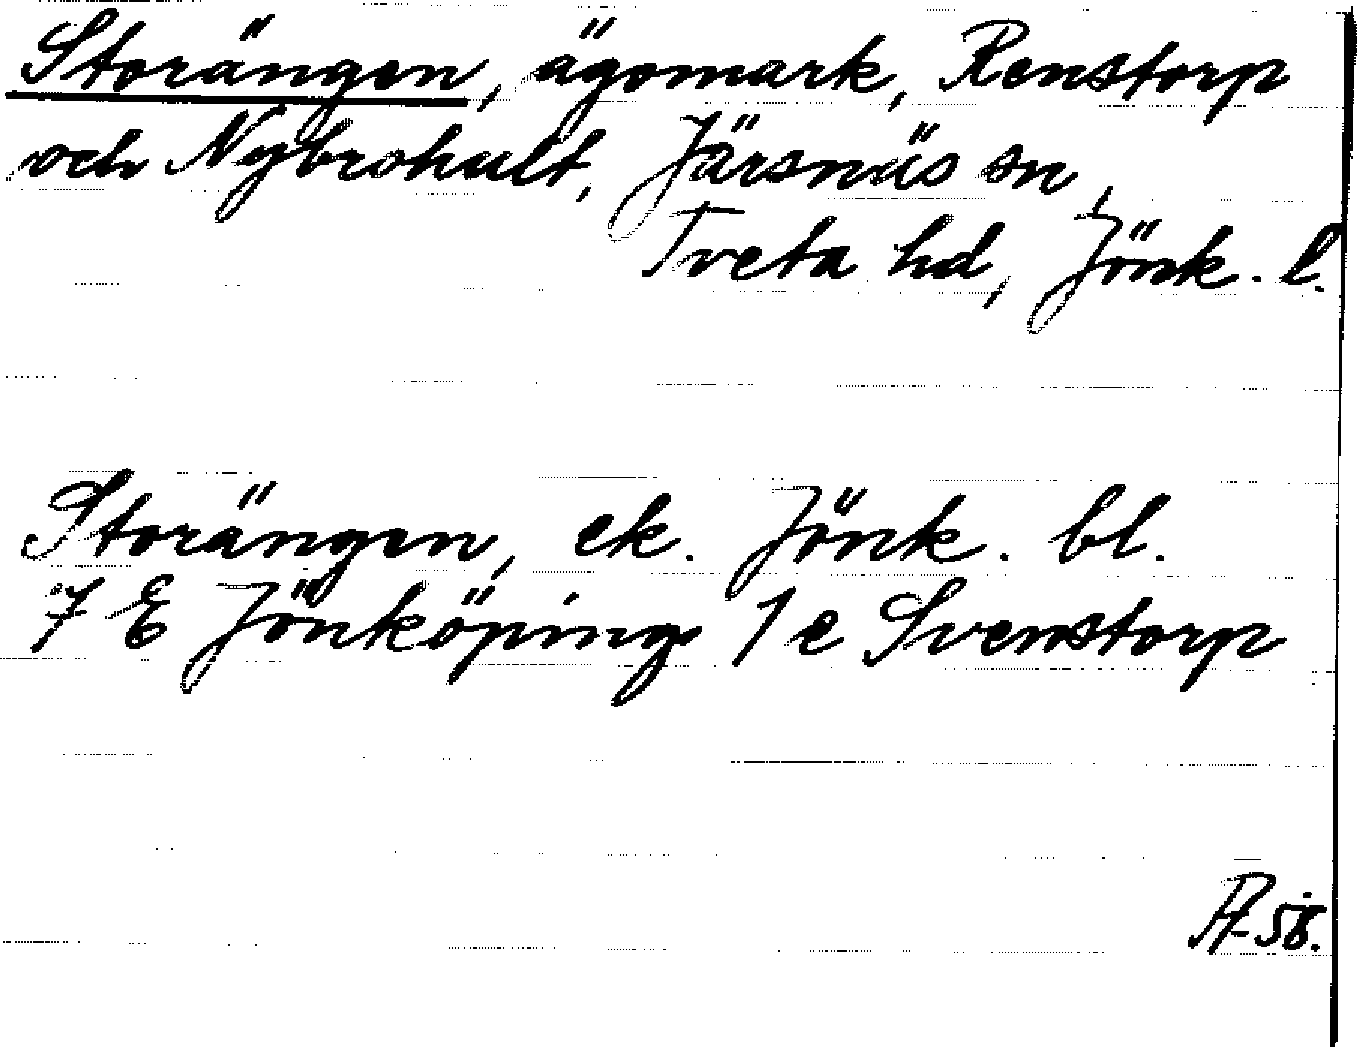 Storängen, ägomark, Renstorp
och Nybrohult, Järsnäs sn,
Tveta hd, Jönk. l.
Storängen, ek. Jönk. bl.
7 E Jönköping 1 e Svenstorp
58.